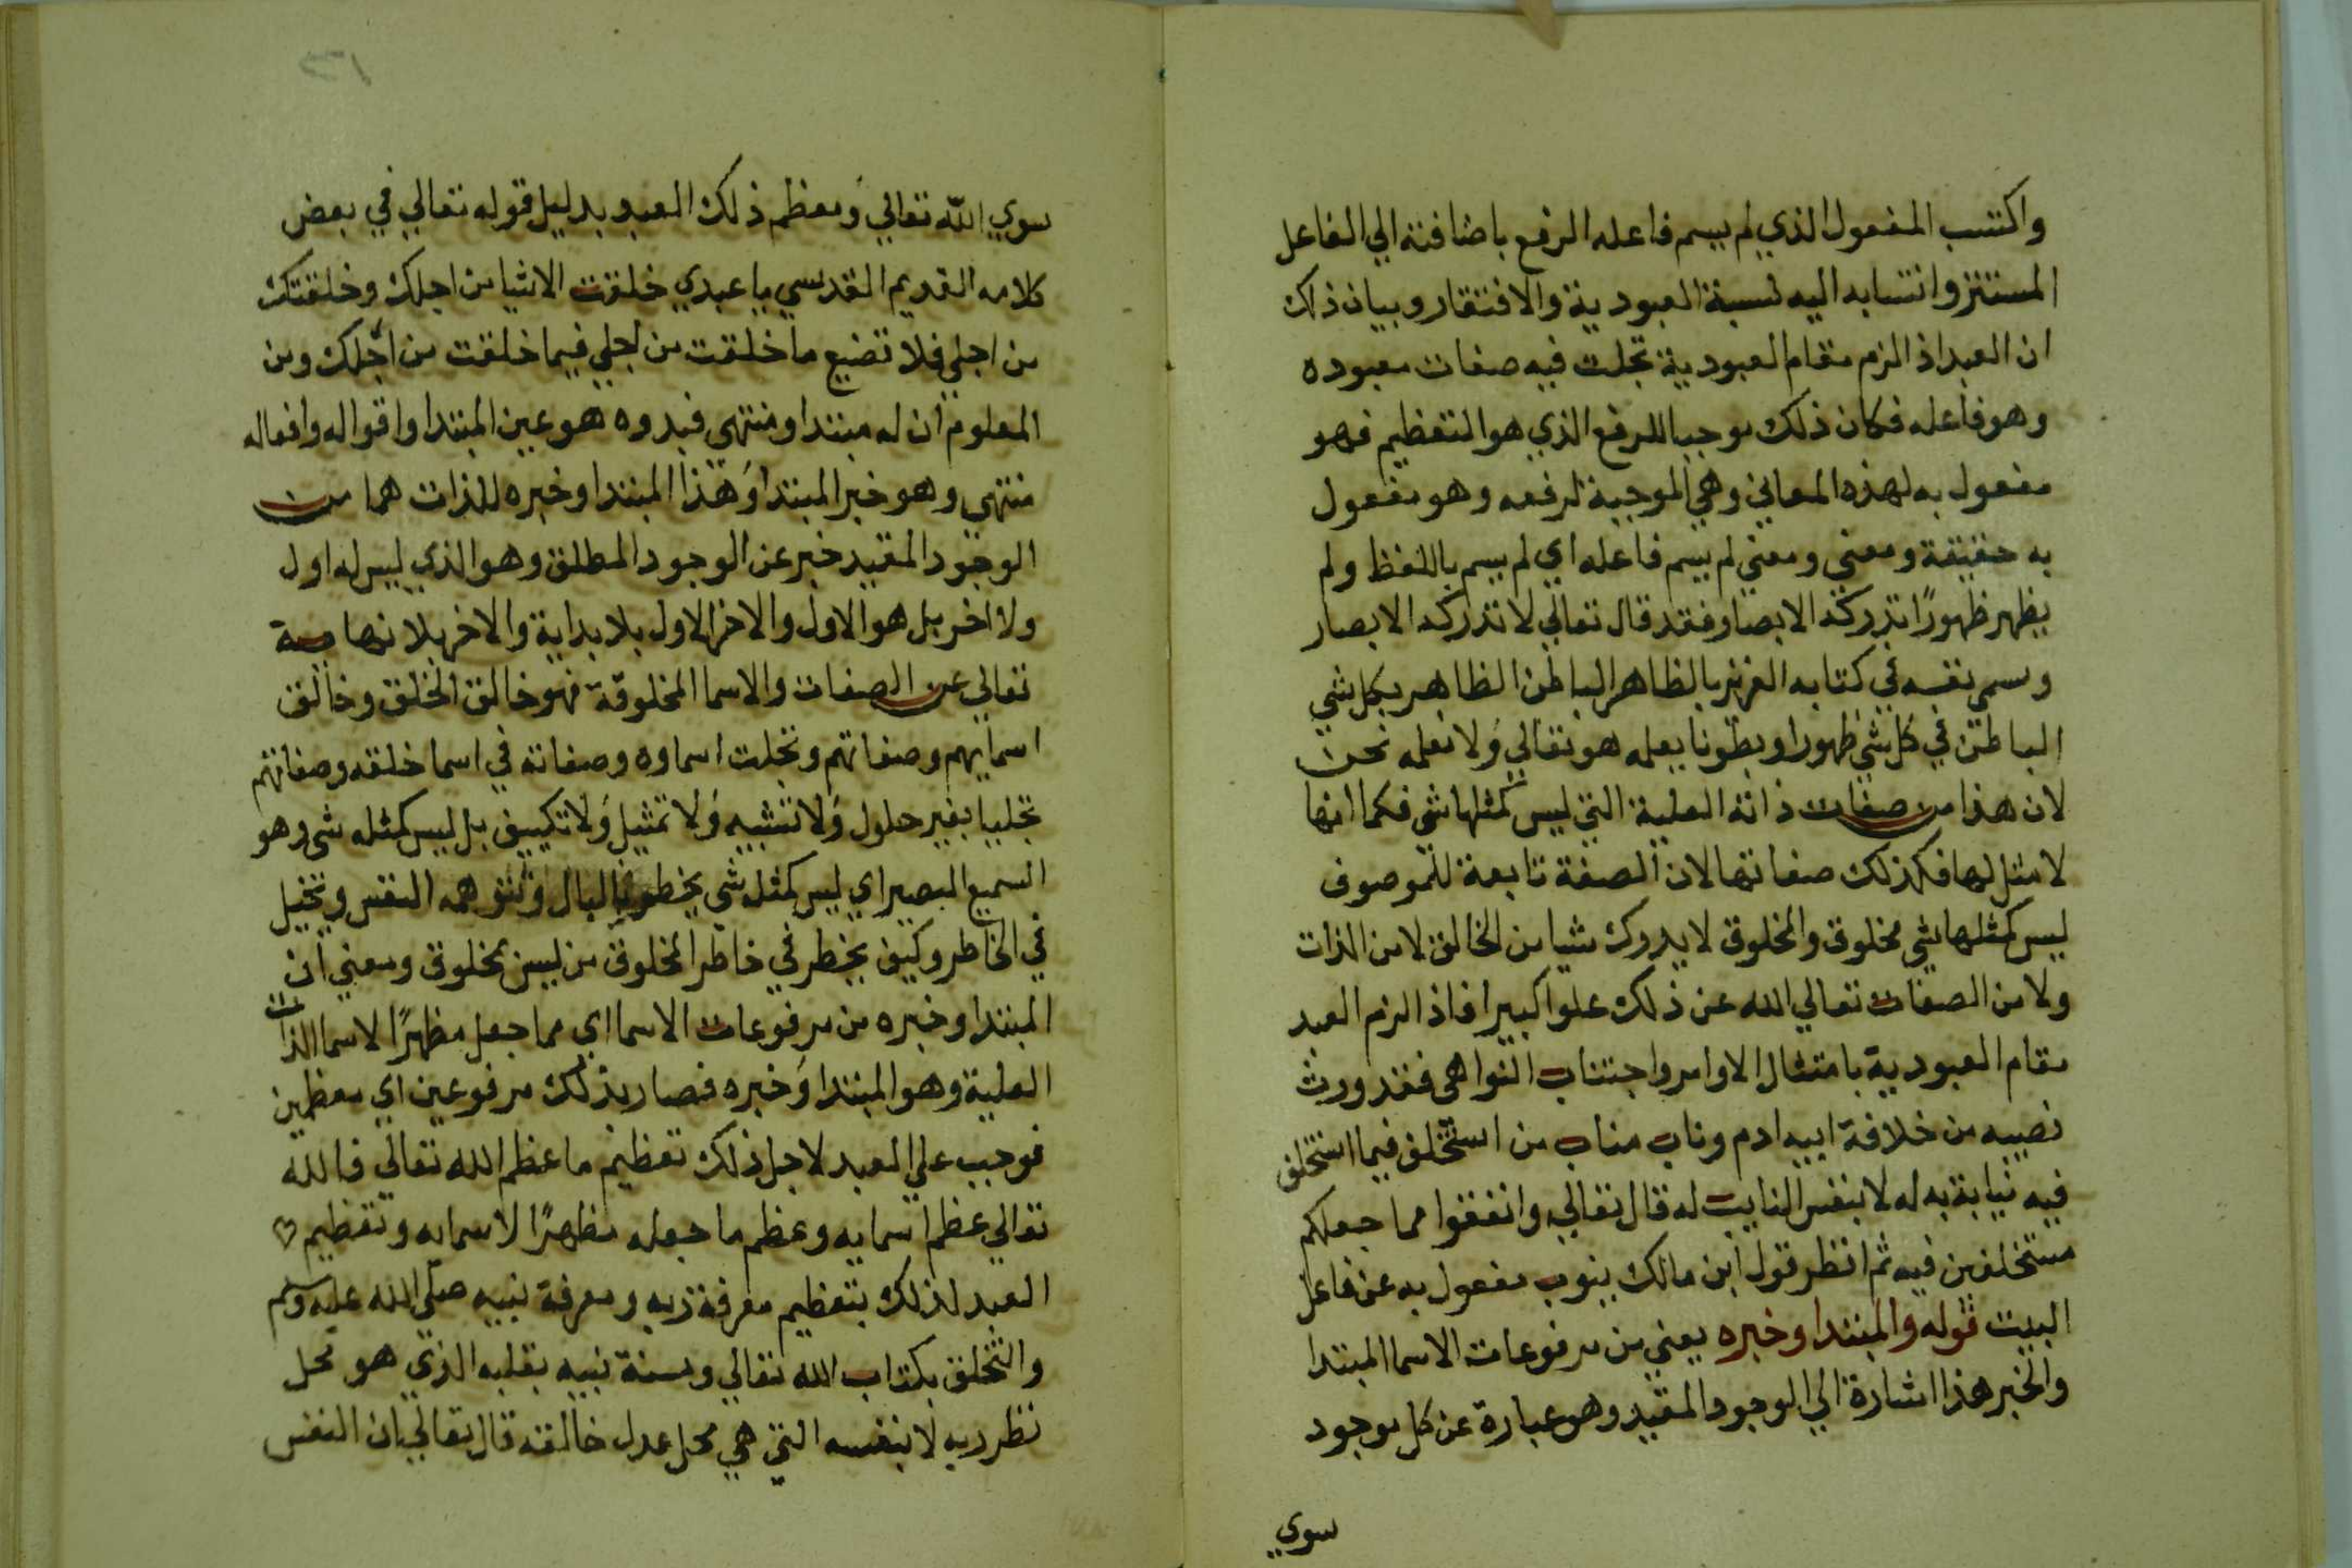 واكتسب المفعول الذي لم يسم فاعله الرفع باضافته الي الفاعل
المستتر وانتسابه اليه نسبة العبودية والافتقار وبيان ذلك
ان العبد اذ الزم مقام العبودية تجلت فيه صفات معبوده
وهو فاعله فكان ذلك موجبا للرفع الذي هو التعظيم فهو
مفعول به لهذه المعاني وهي الموجبة لرفعه وهو مفعول
به حقيقة ومعني ومعني لم يسم فاعله اي لم يسم باللفظ ولم
يظهر ظهورًا تدركه الابصار فقد قال تعالي لا تدركه الابصار
وسمي نفسه في كتابه العزيز بالظاهر الباطن الظاهر بكل شي
الباطن في كل شي ظهورا وبطونا يعلمه هو تعالي ولا نعلمه نحن
لان هذا من صفات ذاته العلية التي ليس كمثلها شي فكما انها
لا مثل لها فكذلك صفاتها لان الصفة تابعة للموصوف
ليس كمثلها شي مخلوق والمخلوق لا يدرك شيا من الخالق لا من الذات
ولا من الصفات تعالي الله عن ذلك علوا كبيرا فاذ الزم العبد
مقام العبودية بامتثال الاوامر واجتناب النواهي فقد ورث
نصيبه من خلافة ابيه ادم وناب مناب من استخلف فيما استخلف
فيه نيابة به له لا بنفس النايب له قال تعالي وانفقوا مما جعلكم
مستخلفين فيه ثم انظر قول ابن مالك ينوب مفعول به عن فاعل
البيت قوله والمبتدا وخبره يعني من مرفوعات الاسما المبتدا
والخبر هذا اشارة الي الوجود المقيد وهو عبارة عن كل موجود
سوي
سوي الله تعالي ومعظم ذلك العبد بدليل قوله تعالي في بعض
كلامه القديم القدسي يا عبدي خلقت الاشيا من اجلك وخلقتك
من اجلي فلا تضيع ما خلقت من اجلي فيما خلقت من اجلك ومن
المعلوم ان له مبتدا ومنتهي فبدوه هو عين المبتدا واقواله وافعاله
منتهي وهو خبر المبتدا وهذا المبتدا وخبره للذات هما من
الوجود المقيد خبر عن الوجود المطلق وهو الذي ليس له اول
ولا اخر بل هو الاول والاخر الاول بلا بداية والاخر بلا نهاية
تعالي عن الصفات والاسما المخلوقة فهو خالق الخلق وخالق
اسمايهم وصفاتهم وتجلت اسماوه وصفاته في اسما خلقه وصفاتهم
تجليا بغير حلول ولا تشبيه ولا تمثيل ولا تكييف بل ليس كمثله شي وهو
السميع البصير اي ليس كمثله شي يخطر بالبال وتتوهمه النفس ويتخيل
في الخاطر وكيف يخطر في خاطر المخلوق من ليس بمخلوق ومعني ان
المبتدا وخبره من مرفوعات الاسما اي مما جعل مظهرًا لاسما الذات
العلية وهو المبتدا وخبره فصار بذلك مرفوعين اي معظمين
فوجب علي العبد لاجل ذلك تعظيم ما عظم الله تعالي فالله
تعالي عظم اسمايه وعظم ما جعله مظهرًا لاسمايه وتعظيم
العبد لذلك بتعظيم معرفة ربه ومعرفة نبيه صلي الله عليه وسلم
والتخلق بكتاب الله تعالي وسنة نبيه بقلبه الذي هو محل
نظر ربه لا بنفسه التي هي محل عدل خالقه قال تعالي ان النفس